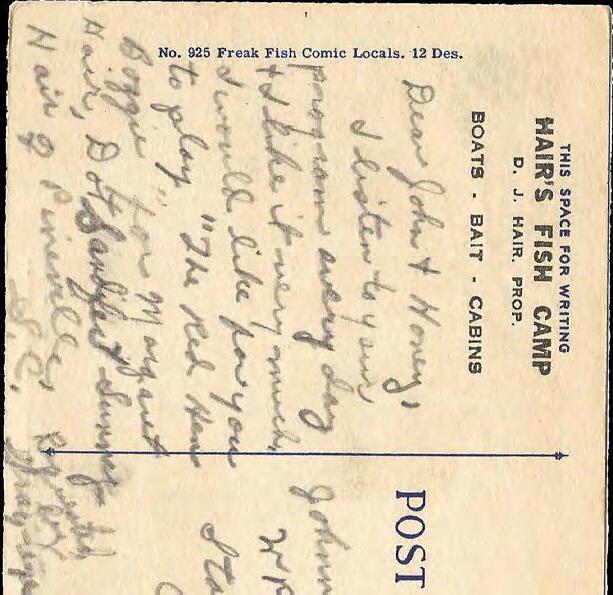 No. 925 Freak Fish Comic Locals. 12 Des.
THIS SPACE FOR WRITING
HAIR'S FISH CAMP
D. J. HAIR. PROP.
BOATS - BAIT - CABINS
Dear John & Honey,
I listen to your
program every day
& I like it very much.
I would like for you
to play, "The Red Hen
Boggie" for Margaret
Hair, Dot Sandifer & Sunny
Hair of Pineville,
S.C.
POST
Johnn
W
Sta